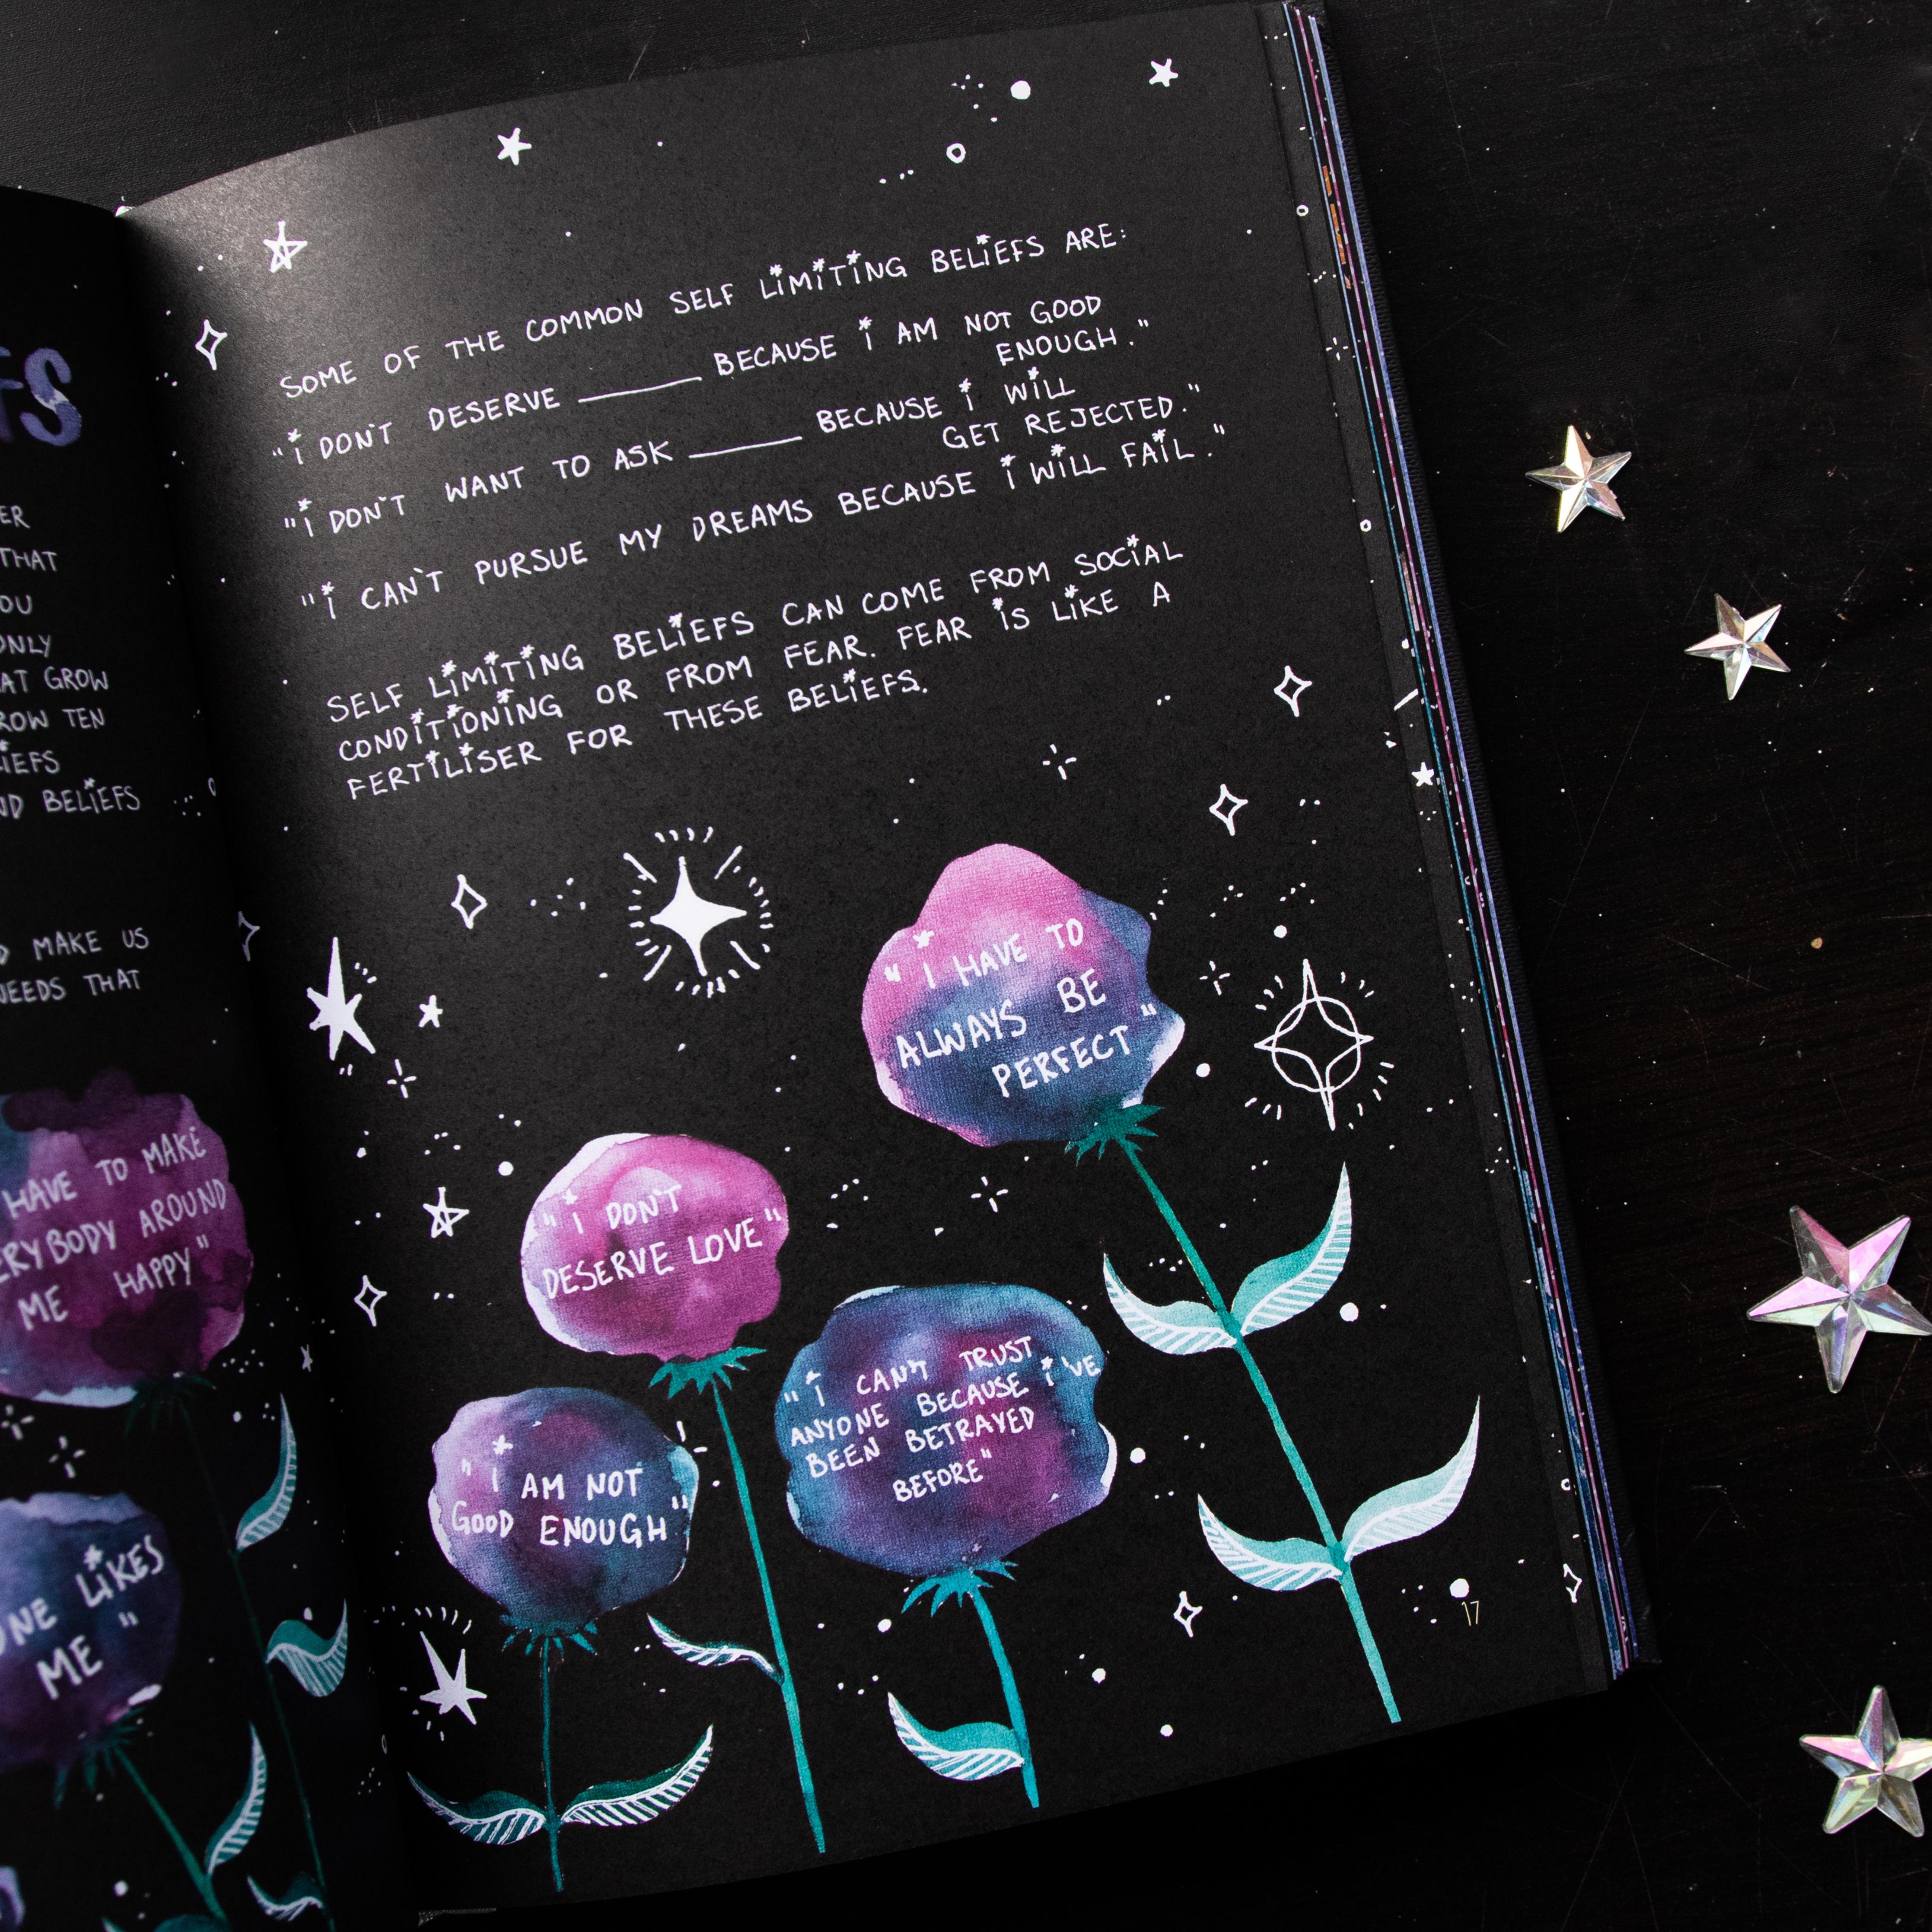 FS
ER
THAT
OU
ONLY
AT GROW
ROW TEN
IEFS
ND BELIEFS
D MAKE US
NEEDS THAT
HAVE TO MAKE
ERYBODY AROUND
ME HAPPY"
ONE LIKES
ME"
SOME OF THE COMMON SELF LIMITING BELIEFS ARE:
"I DON'T DESERVE ______ BECAUSE I AM NOT GOOD
ENOUGH."
"I DON'T WANT TO ASK ______ BECAUSE I WILL
GET REJECTED."
"I CAN'T PURSUE MY DREAMS BECAUSE I WILL FAIL."
SELF LIMITING BELIEFS CAN COME FROM SOCIAL
CONDITIONING OR FROM FEAR. FEAR IS LIKE A
FERTILISER FOR THESE BELIEFS.
"I HAVE TO
ALWAYS BE
PERFECT"
"I DON'T
DESERVE LOVE"
"I CAN'T TRUST
ANYONE BECAUSE I'VE
BEEN BETRAYED
BEFORE"
"I AM NOT
GOOD ENOUGH"
17